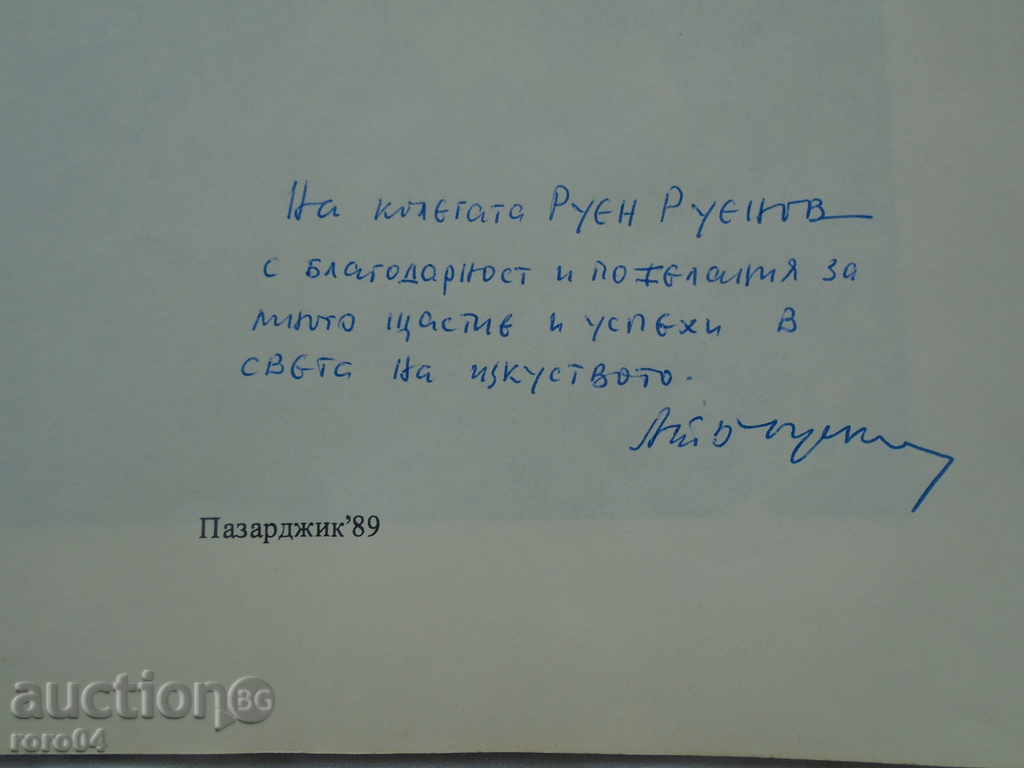 На колегата Руен Руенов
с благодарност и пожелания за
много щастие и успехи в
света на изкуството.
Пазарджик'89
auction BG
roro04